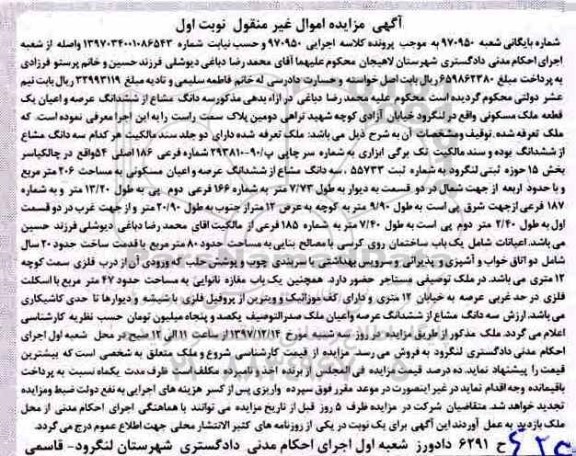 آگهی مزایده اموال غیر منقول نوبت اول
شماره بایگانی شعبه ۹۷۰۹۵۰ به موجب پرونده کلاسه اجرایی ۹۷۰۹۵۰ و حسب نیابت شماره ۱۳۹۷۰۳۴۰۰۱۰۸۶۵۴۳ واصله از شعبه
اجرای احکام مدنی دادگستری شهرستان لاهیجان محکوم علیهما آقای محمد رضا دباغی دیوشلی فرزند حسین و خانم پرستو فرزادی
به پرداخت مبلغ ۶۵۹۸۶۲۳۸۰ ریال بابت اصل خواسته و خسارت دادرسی له خانم فاطمه سلیمی و تادیه مبلغ ۳۲۹۹۳۱۱۹ ریال بابت نیم
عشر دولتی محکوم گردیده است محکوم علیه محمد رضا دباغی در ازاء بدهی مذکور سه دانگ مشاع از ششدانگ عرصه و اعیان یک
قطعه ملک مسکونی واقع در لنگرود خیابان آزادی کوچه شهید تراهی دومین پلاک سمت راست را به این اجرا معرفی نموده است. که
ملک تعرفه شده توقیف و مشخصات آن به شرح ذیل می باشد: ملک تعرفه شده دارای دو جلد سند مالکیت هر کدام سه دانگ مشاع
از ششدانگ بوده و سند مالکیت تک برگی ابزاری به شماره سر چاپی پ/۹۰-۲۹۳۸۱۰ شماره فرعی ۱۸۶ اصلی ۵۴ واقع در چالکیاسر
بخش ۱۵ حوزه ثبتی لنگرود به شماره ثبت ۵۵۷۳۳ ، سه دانگ مشاع از ششدانگ عرصه و اعیان مسکونی به مساحت ۲۰۶ متر مربع
و با حدود اربعه از جهت شمال در دو قسمت به دیوار به طول ۷/۷۳ متر به شماره ۱۶۶ فرعی دوم پی به طول ۱۳/۲۰ متر و به شماره
۱۸۷ فرعی از جهت شرق پی است به طول ۹/۹۰ متر به کوچه به عرض ۱۲ متر از جنوب به طول ۲۰/۹۰ متر و از جهت غرب در دو قسمت
اول به طول ۲/۴۰ متر دوم پی است به طول ۷/۴۰ متر به شماره ۱۸۵ فرعی از مالکیت آقای محمد رضا دباغی دیوشلی فرزند حسین
می باشد. اعیانات شامل یک باب ساختمان روی کرسی با مصالح بنایی به مساحت حدود ۸۰ متر مربع با قدمت ساخت حدود ۲۰ سال
شامل دو اتاق خواب و آشپزی و پذیرائی و سرویس بهداشتی با سربندی چوب و پوشش حلب که ورودی آن از درب فلزی سمت کوچه
۱۲ متری می باشد. در ملک توصیفی مستاجر حضور دارد. همچنین یک باب مغازه نانوایی به مساحت حدود ۴۷ متر مربع با اسکلت
فلزی در حد غربی عرصه به خیابان ۱۲ متری و دارای کف موزائیک و ویترین از پروفیل فلزی با شیشه و دیوارها تا حدی کاشیکاری
می باشد، ارزش سه دانگ مشاع از ششدانگ عرصه و اعیان ملک صدرالتوصیف یکصد و پنجاه میلیون تومان حسب نظریه کارشناسی
اعلام می گردد. ملک مذکور از طریق مزایده در روز سه شنبه مورخ ۱۳۹۷/۱۲/۱۴ از ساعت ۱۱ الی ۱۲ صبح در محل شعبه اول اجرای
احکام مدنی دادگستری لنگرود به فروش می رسد. مزایده از قیمت کارشناسی شروع و ملک متعلق به شخصی است که بیشترین
قیمت را پیشنهاد نماید. ده درصد قیمت مزایده فی المجلس از برنده اخذ و نامبرده مکلف است ظرف مدت یکماه نسبت به پرداخت
باقیمانده وجه اقدام نماید در غیر اینصورت در موعد مقرر فوق سپرده واریزی پس از کسر هزینه های اجرایی به نفع دولت ضبط و مزایده
تجدید خواهد شد. متقاضیان شرکت در مزایده ظرف ۵ روز قبل از تاریخ مزایده می توانند با هماهنگی اجرای احکام مدنی از محل
ملک بازدید به عمل آورند این آگهی برای یک نوبت در یکی از روزنامه های کثیر الانتشار محلی جهت اطلاع عموم درج می گردد.
ح ۶۲۹۱ دادورز شعبه اول اجرای احکام مدنی دادگستری شهرستان لنگرود- قاسمی